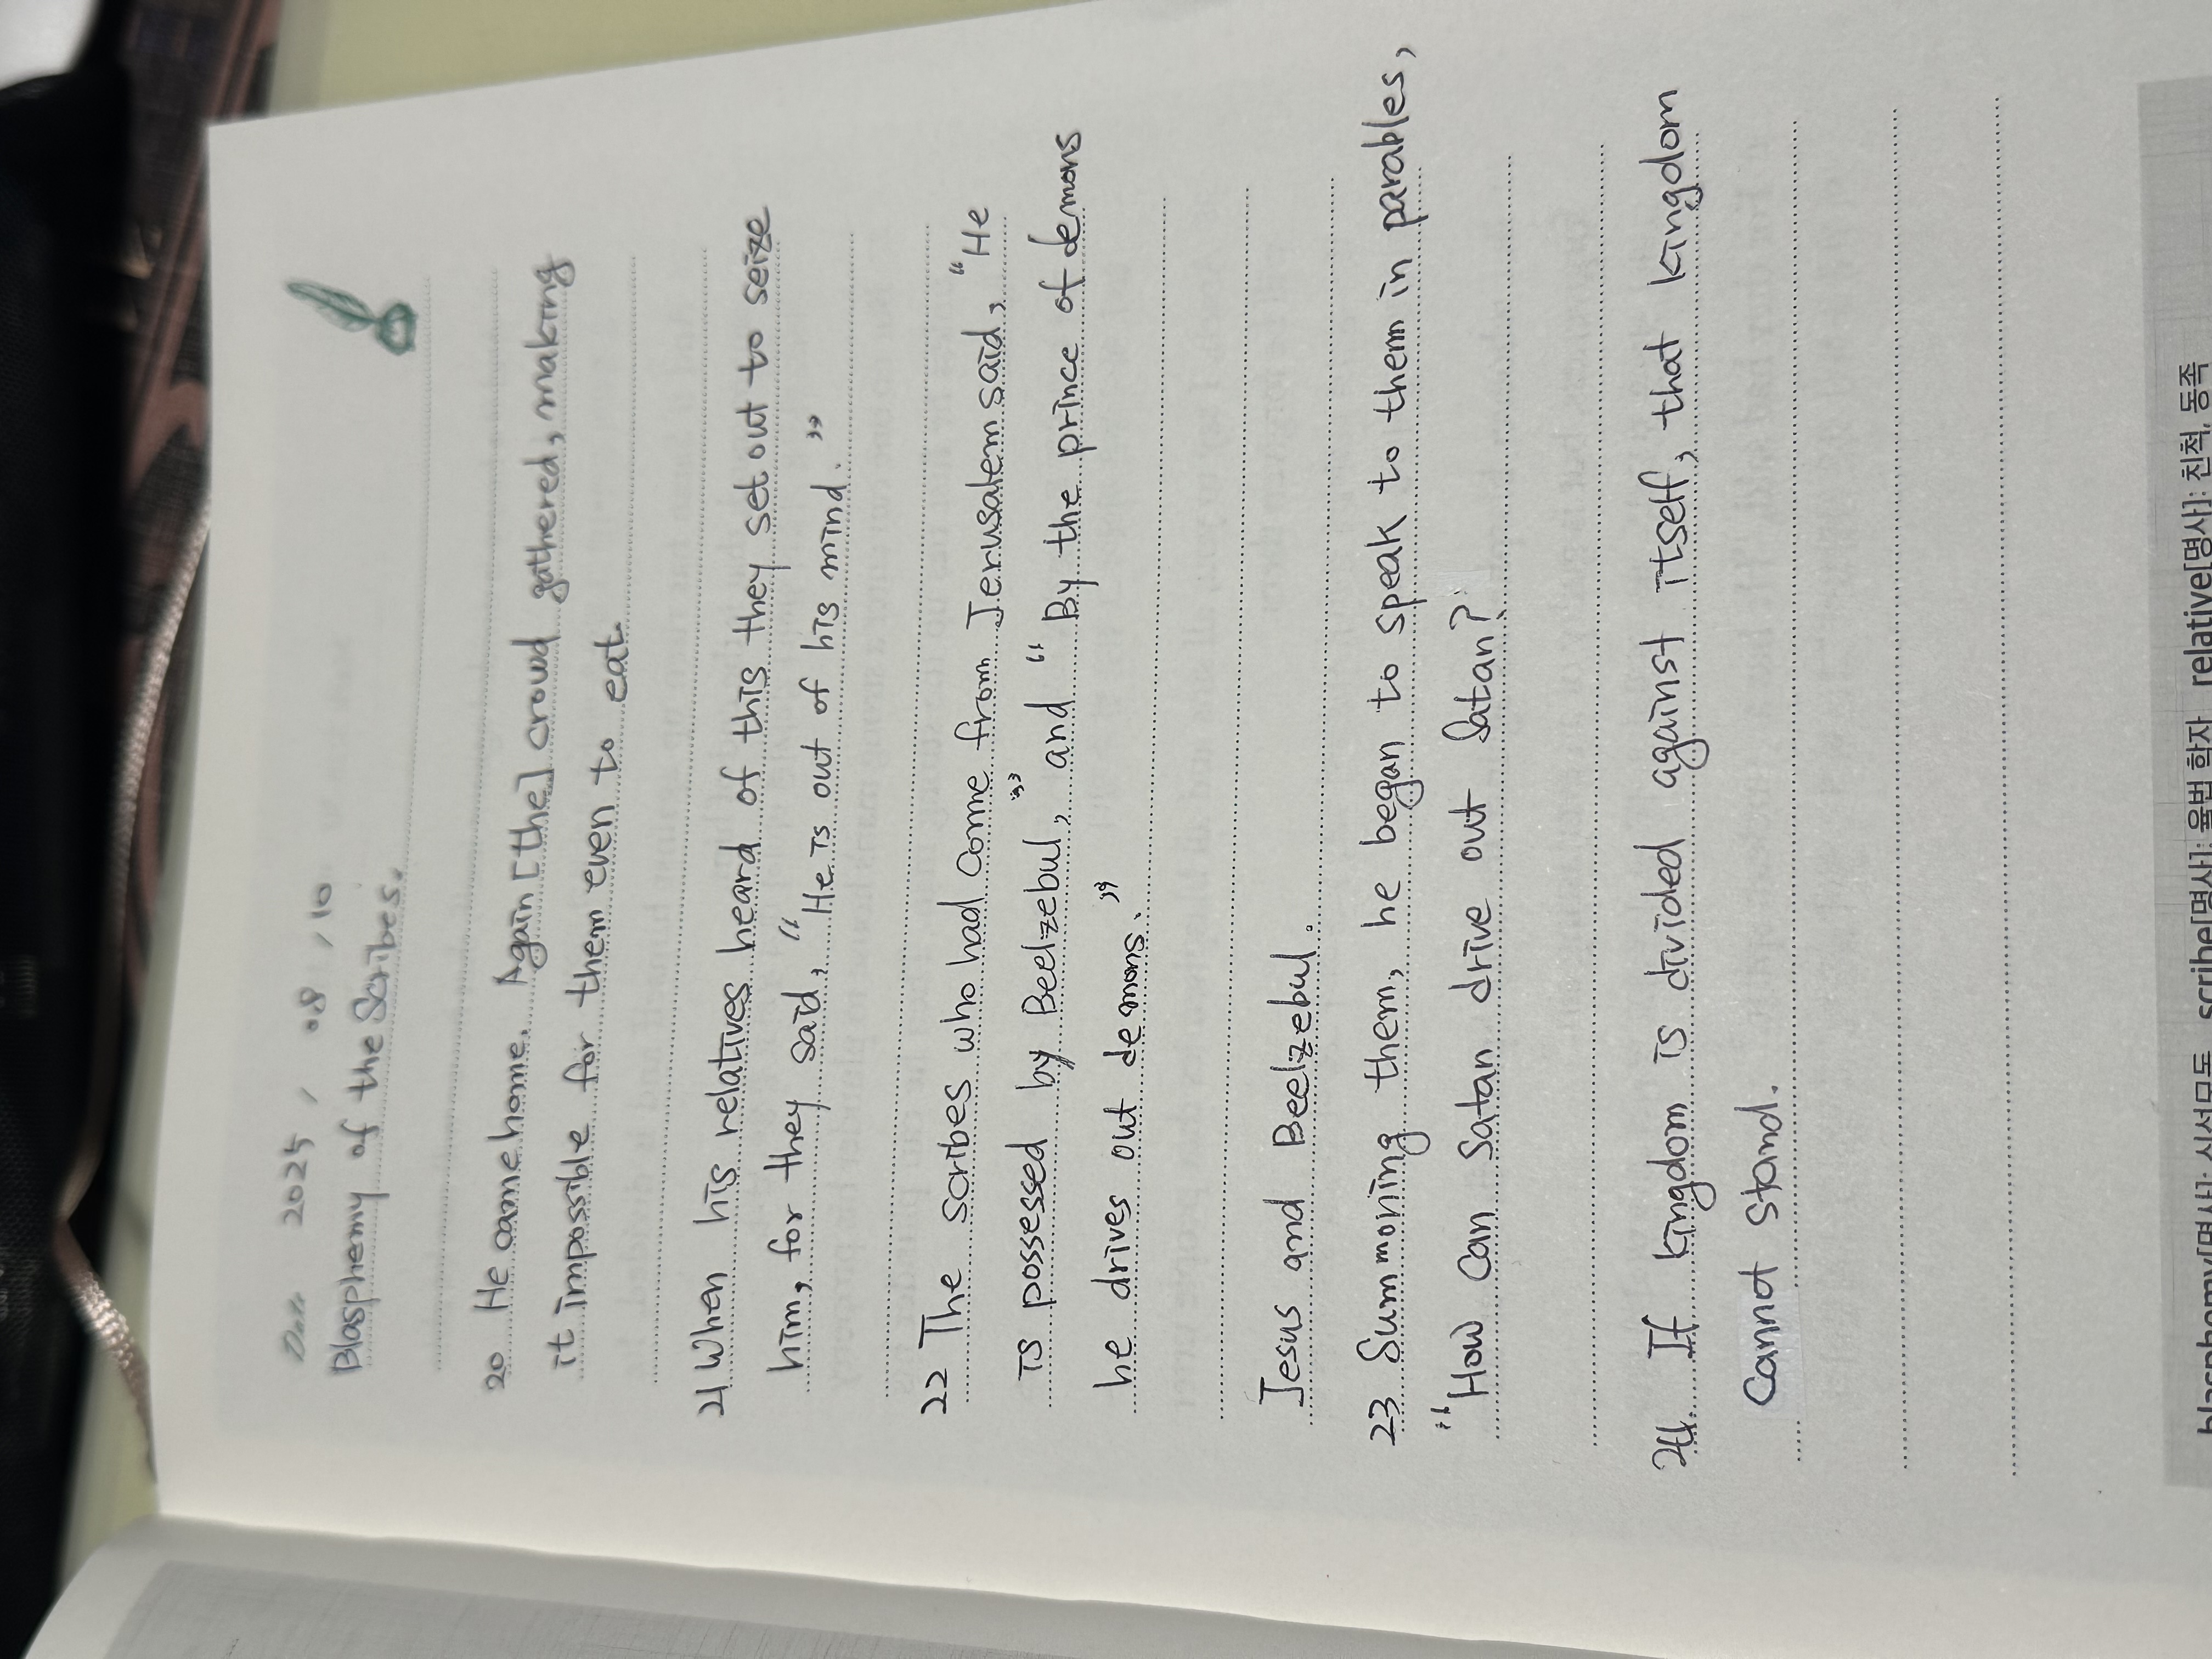 Date 2025 / 08 / 10
Blasphemy of the Scribes.
20 He came home. Again [the] crowd gathered, making
it impossible for them even to eat.
21 When his relatives heard of this they set out to seize
him, for they said, "He is out of his mind."
22 The scribes who had come from Jerusalem said, "He
is possessed by Beelzebul," and "By the prince of demons
he drives out demons."
Jesus and Beelzebul.
23 Summoning them, he began to speak to them in parables,
"How can Satan drive out Satan?
24. If kingdom is divided against itself, that kingdom
cannot stand.
scribe[명사]: 율법 학자 relative[명사]: 친척, 동족